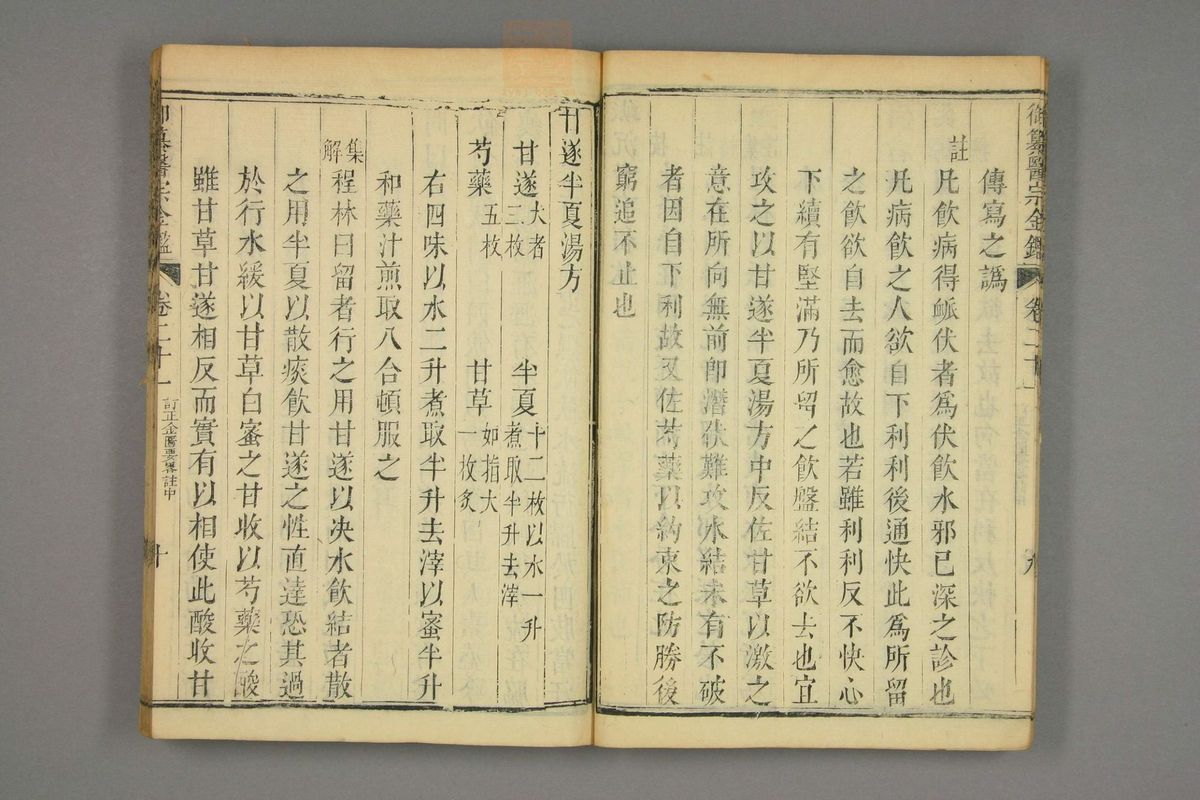 御纂醫宗金鑑 卷二十一 九
傳寫之譌
註
凡飲病得䘑伏者爲伏飲水邪已深之診也
凡病飲之人欲自下利利後通快此爲所留
之飲欲自去而愈故也若雖利利反不快心
下續有堅滿乃所留之飲盤結不欲去也宜
攻之以甘遂半夏湯方中反佐甘草以激之
意在所向無前卽潛伏難攻水結未有不破
者因自下利故又佐芍藥以約束之防勝後
窮追不止也
甘遂半夏湯方
甘遂大者三枚 半夏十二枚以水一升煮取半升去滓
芍藥五枚 甘草如指大一枚炙
右四味以水二升煮取半升去滓以蜜半升
和藥汁煎取八合頓服之
集解
程林曰留者行之用甘遂以决水飲結者散
之用半夏以散痰飲甘遂之性直達恐其過
於行水緩以甘草白蜜之甘收以芍藥之酸
雖甘草甘遂相反而實有以相使此酸收甘
御纂醫宗金鑑 卷二十一 訂正金匱要畧註中 十